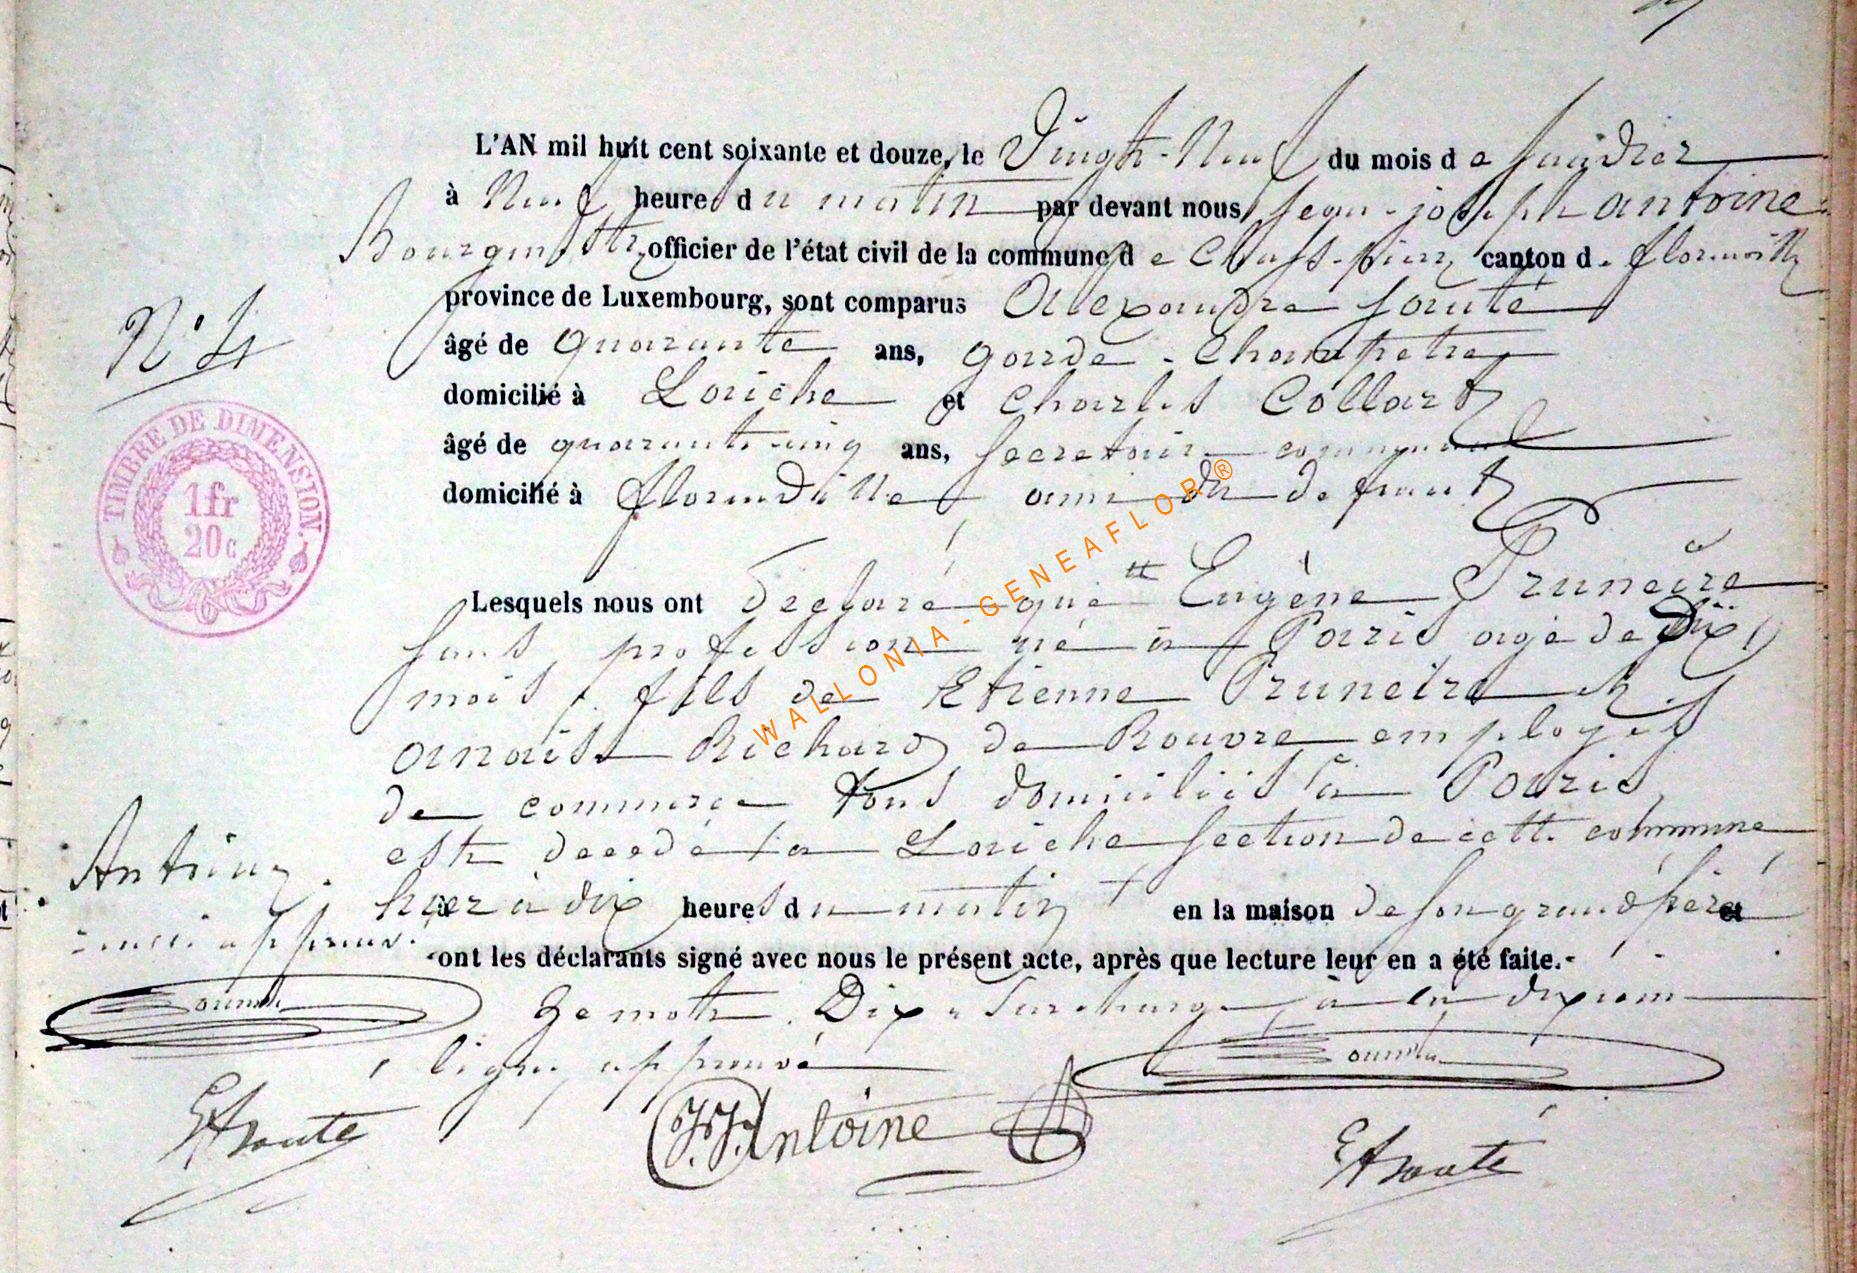 L'AN mil huit cent soixante et douze, le Vingt-Neuf du mois de
à Neuf heures du matin par devant nous, Jean-joseph antoine
Bourgmestre, officier de l'état civil de la commune de Chassepierre canton de florenville
province de Luxembourg, sont comparus Alexandre
N° 4
âgé de quarante ans, garde-champetre
domicilié à Laiche et Charles Collart
âgé de quarante cinq ans, secretaire communal
domicilié à florenville ami du defunt
TIMBRE DE DIMENSION.
1fr
20c
Lesquels nous ont declaré que Eugène Pruneire
sans profession né à Paris agé de Dix
mois, fils de Etienne Pruneire et
anaïse Richard de Rouvre employés
de commerce tous domiciliés à Paris,
est decedé à Laiche section de cette commune
hier à dix heures du matin en la maison de son grand père et
ont les déclarants signé avec nous le présent acte, après que lecture leur en a été faite.
Le mot Dix surchargé, à la dixième
ligne, approuvé
J.J. Antoine
WALLONIA - GENEAFLOR®